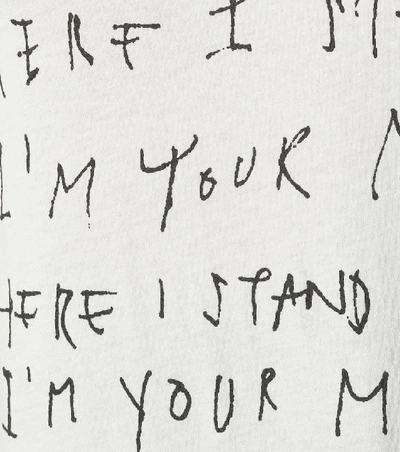 ERE I
I'M YOUR
HERE I STAND
I'M YOUR M